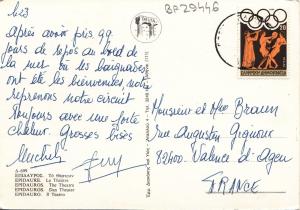 BF29446
le 23
Après avoir pris qq
jours de repos au bord de
la mer où les baignades
ont été les bienvenues, nous
reprenons notre circuit
toujours avec une forte
chaleur. Grosses bises
Monsieur et Mme Braun
rue Augustin Gignoux
82400 Valence d'Agen
FRANCE
Δ-695
ΕΠΙΔΑΥΡΟΣ. Τὸ Θέατρον
EPIDAURE. Le Théâtre
EPIDAUROS. The Theatre
EPIDAUROS. Das Theater
EPIDAURO. Il Teatro
ΕΛΛΗΝΙΚΗ ΔΗΜΟΚΡΑΤΙΑ